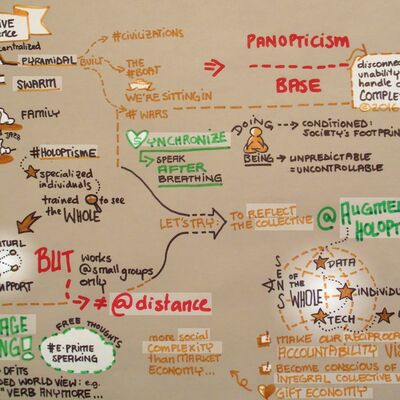 IVE
centralized
PYRAMIDAL
BUILT
#CIVILIZATIONS
THE
#BOAT
WE'RE SITTING IN
# WARS
SWARM
FAMILY
JAZZ
PANOPTICISM
BASE
disconnec
unability
handle c
COMPLE
©2016
#HOLOPTISME
specialized
individuals
trained to see
the WHOLE
SYNCHRONIZE
SPEAK
AFTER
BREATHING
DOING
BEING
CONDITIONED:
SOCIETY'S FOOTPRIN
UNPREDICTABLE
=UNCONTROLLABLE
LET'S TRY:
TO REFLECT
THE COLLECTIVE
@AUGMEN
HOLOPT
UPPORT
BUT
works
@small groups
only
≠ @distance
SENS
OF THE
WHOLE
DATA
INDIVIDU
TECH
AGE
NG!
OF ITS
DED WORLD VIEW: e.g.
VERB ANYMORE...
FREE THOUGHTS
#E-PRIME
SPEAKING
more social
complexity
than MARKET
ECONOMY...
MAKE OUR RECIPROCA
ACCOUNTABILITY VIS
BECOME CONSCIOUS OF
INTEGRAL COLLECTIVE W
GIFT ECONOMY